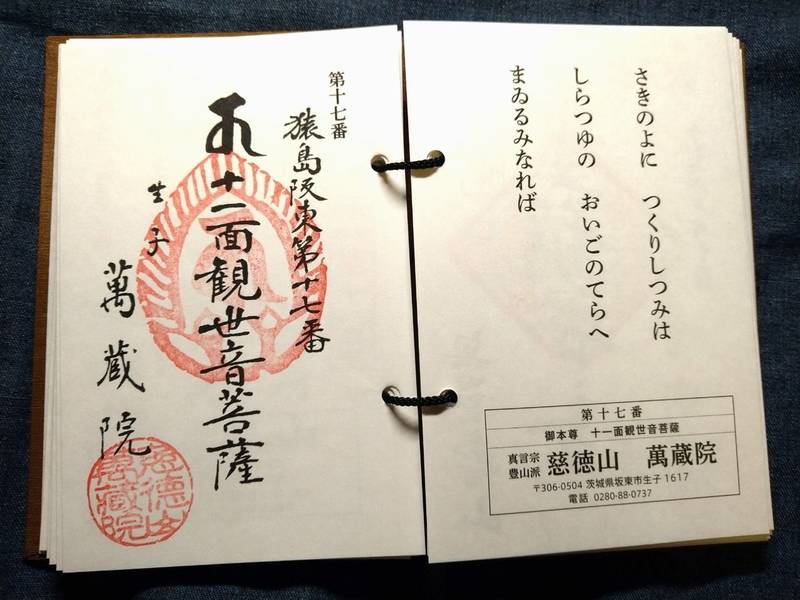 さきのよに つくりしつみは
しらつゆの おいごのてらへ
まゐるみなれば
第十七番
御本尊 十一面観世音菩薩
真言宗
豊山派
慈徳山 萬蔵院
〒306-0504 茨城県坂東市生子1617
電話 0280-88-0737
第十七番
猿島阪東第十七番
十一面観世音菩薩
生子
萬蔵院
慈徳山
萬蔵院